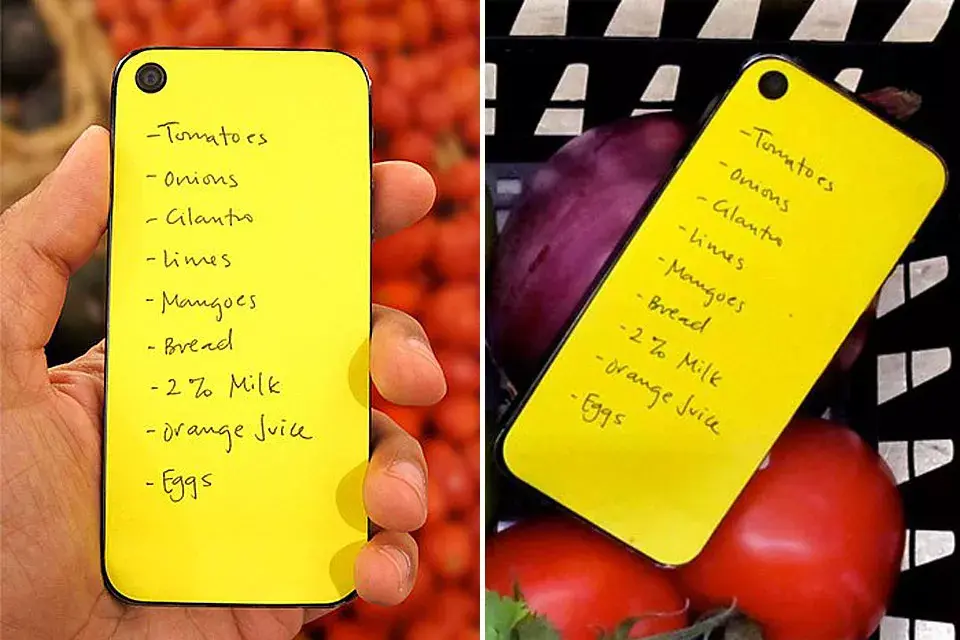 -Tomatoes
-Onions
-Cilantro
-Limes
-Mangoes
-Bread
-2% Milk
-Orange Juice
-Eggs
-Tomatoes
-Onions
-Cilantro
-Limes
-Mangoes
-Bread
-2% Milk
-Orange Juice
-Eggs